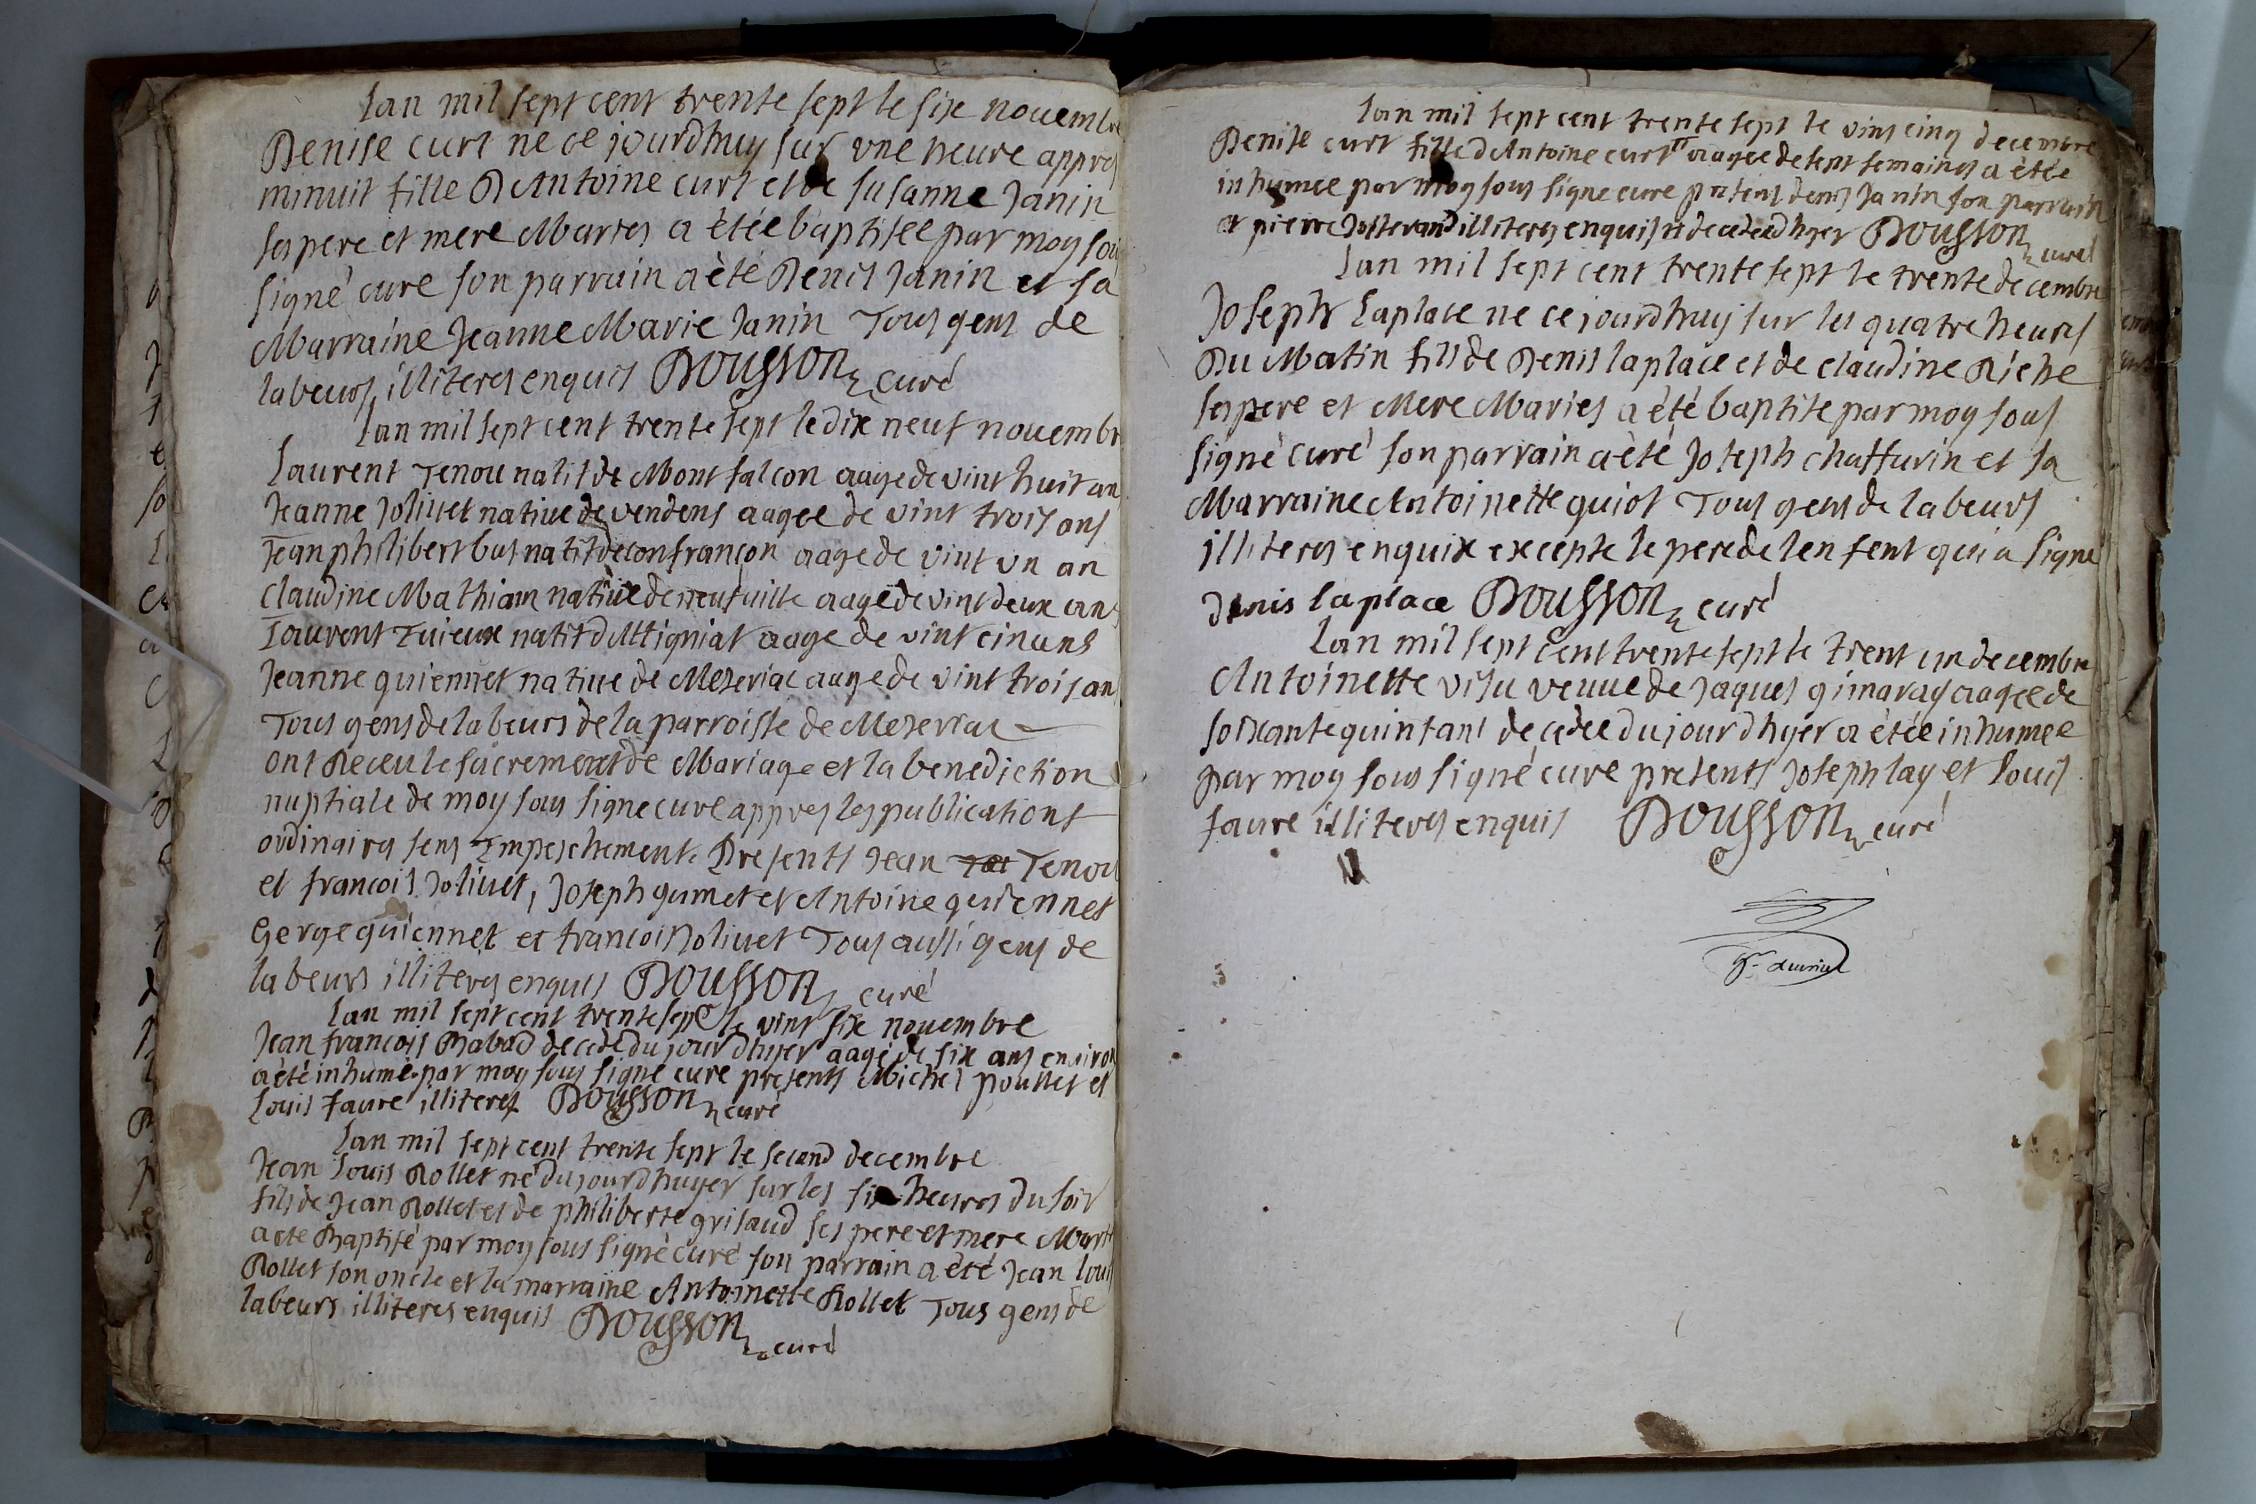 Lan mil sept cent trente sept le six nouembre
Denise curt ne ce jourdhuy sur vne heure appres
minuit fille DAntoine curt et de susanne Janin
ses pere et mere Maries a étée baptisee par moy sous
signé cure son parrain a été Denis Janin et sa
Marraine Jeanne Marie Janin Tous gens de
labeurs illiteres enquis Dousson curé
Lan mil sept cent trente sept le dix neuf nouembre
Laurent Tenou natif de Montfalcon aage de vint huit an
Jeanne Joliuet natiue de vendens aagee de vint trois ans
Jean philibert bus natif de confrançon aage de vint vn an
Claudine Mathiam natiue de neufuille aagé de vint deux ans
Laurent Tuieux natif dAttigniat aage de vint cin ans
Jeanne quiennet natiue de Mezeriac aage de vint trois ans
Tous gens de labeurs de la parroisse de Mezeriac
ont Receu le sacrement de Mariage et la benediction
nuptiale de moy sous signe cure appres les publications
ordinaires sens Empeschement. Presents Jean Tenou
et francois Joliuet, Joseph gumet et Antoine quiennet
Gerge quiennet et francois Joliuet Tous aussi gens de
labeurs illiteres enquis Dousson curé
Lan mil sept cent trente sept le vint six nouembre
Jean francois Rabad decede du jour dhyer aagé de six ans enuiron
a été inhumé par moy sous signé cure presents Michel poullet et
Louis faure illiteres Dousson curé
Lan mil sept cent trente sept le second decembre
Jean Louis Rollet né du jourdhuyer sur les six heures du soir
fils de Jean Rollet et de philiberte grisaud ses pere et mere Marie
a ete Baptisé par moy sous signé curé son parrain a été Jean louis
Rollet son oncle et la marraine Antoinette Rollet Tous gens de
labeurs illiteres enquis Dousson curé
Lan mil sept cent trente sept le vint cinq decembre
Denise curt fille dAntoine curt aagee de sept semaines a étée
inhumee par moy sous signe cure presens denis Janin son parrain
et pierre illiteres enquis decedee dhyer Dousson curé
Lan mil sept cent trente sept le trente decembre
Joseph Laplace ne ce jourdhuy sur les quatre heures
Du Matin fils de Denis laplace et de claudine Riche
ses pere et Mere Maries a été baptise par moy sous
signé curé son parrain a été Joseph chaffurin et sa
Marraine Antoinette guiot Tous gens de labeurs
illiteres enquix excepte le pere de lenfent qui a signe
denis laplace Dousson curé
Lan mil sept cent trente sept le trent un decembre
Antoinette visu veuue de Jaques gimaray aagee de
soixante quinsans decedee du jour dhyer a étée inhumee
par moy sous signé cure presents Joseph lay et Louis
faure illiteres enquis Dousson curé